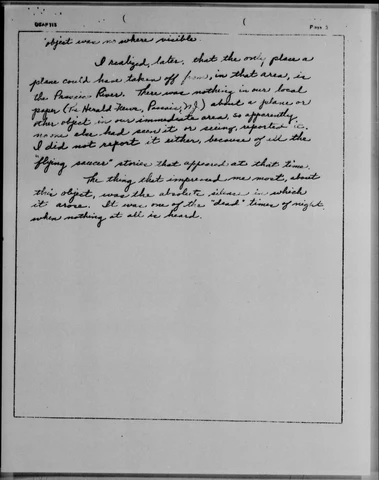 PAGE 3
object was no where visible.
I realized, later, that the only place a
plane could have taken off from, in that area, is
the Passaic River. There was nothing in our local
paper (The Herald News, Passaic, N.J.) about a plane or
other object in our immediate area, so apparently
no one else had seen it or seeing, reported it.
I did not report it either, because of all the
"flying saucer" stories that appeared at that time.
The thing that impressed me most, about
this object, was the absolute silence in which
it arose. It was one of the "dead" times of night
when nothing at all is heard.